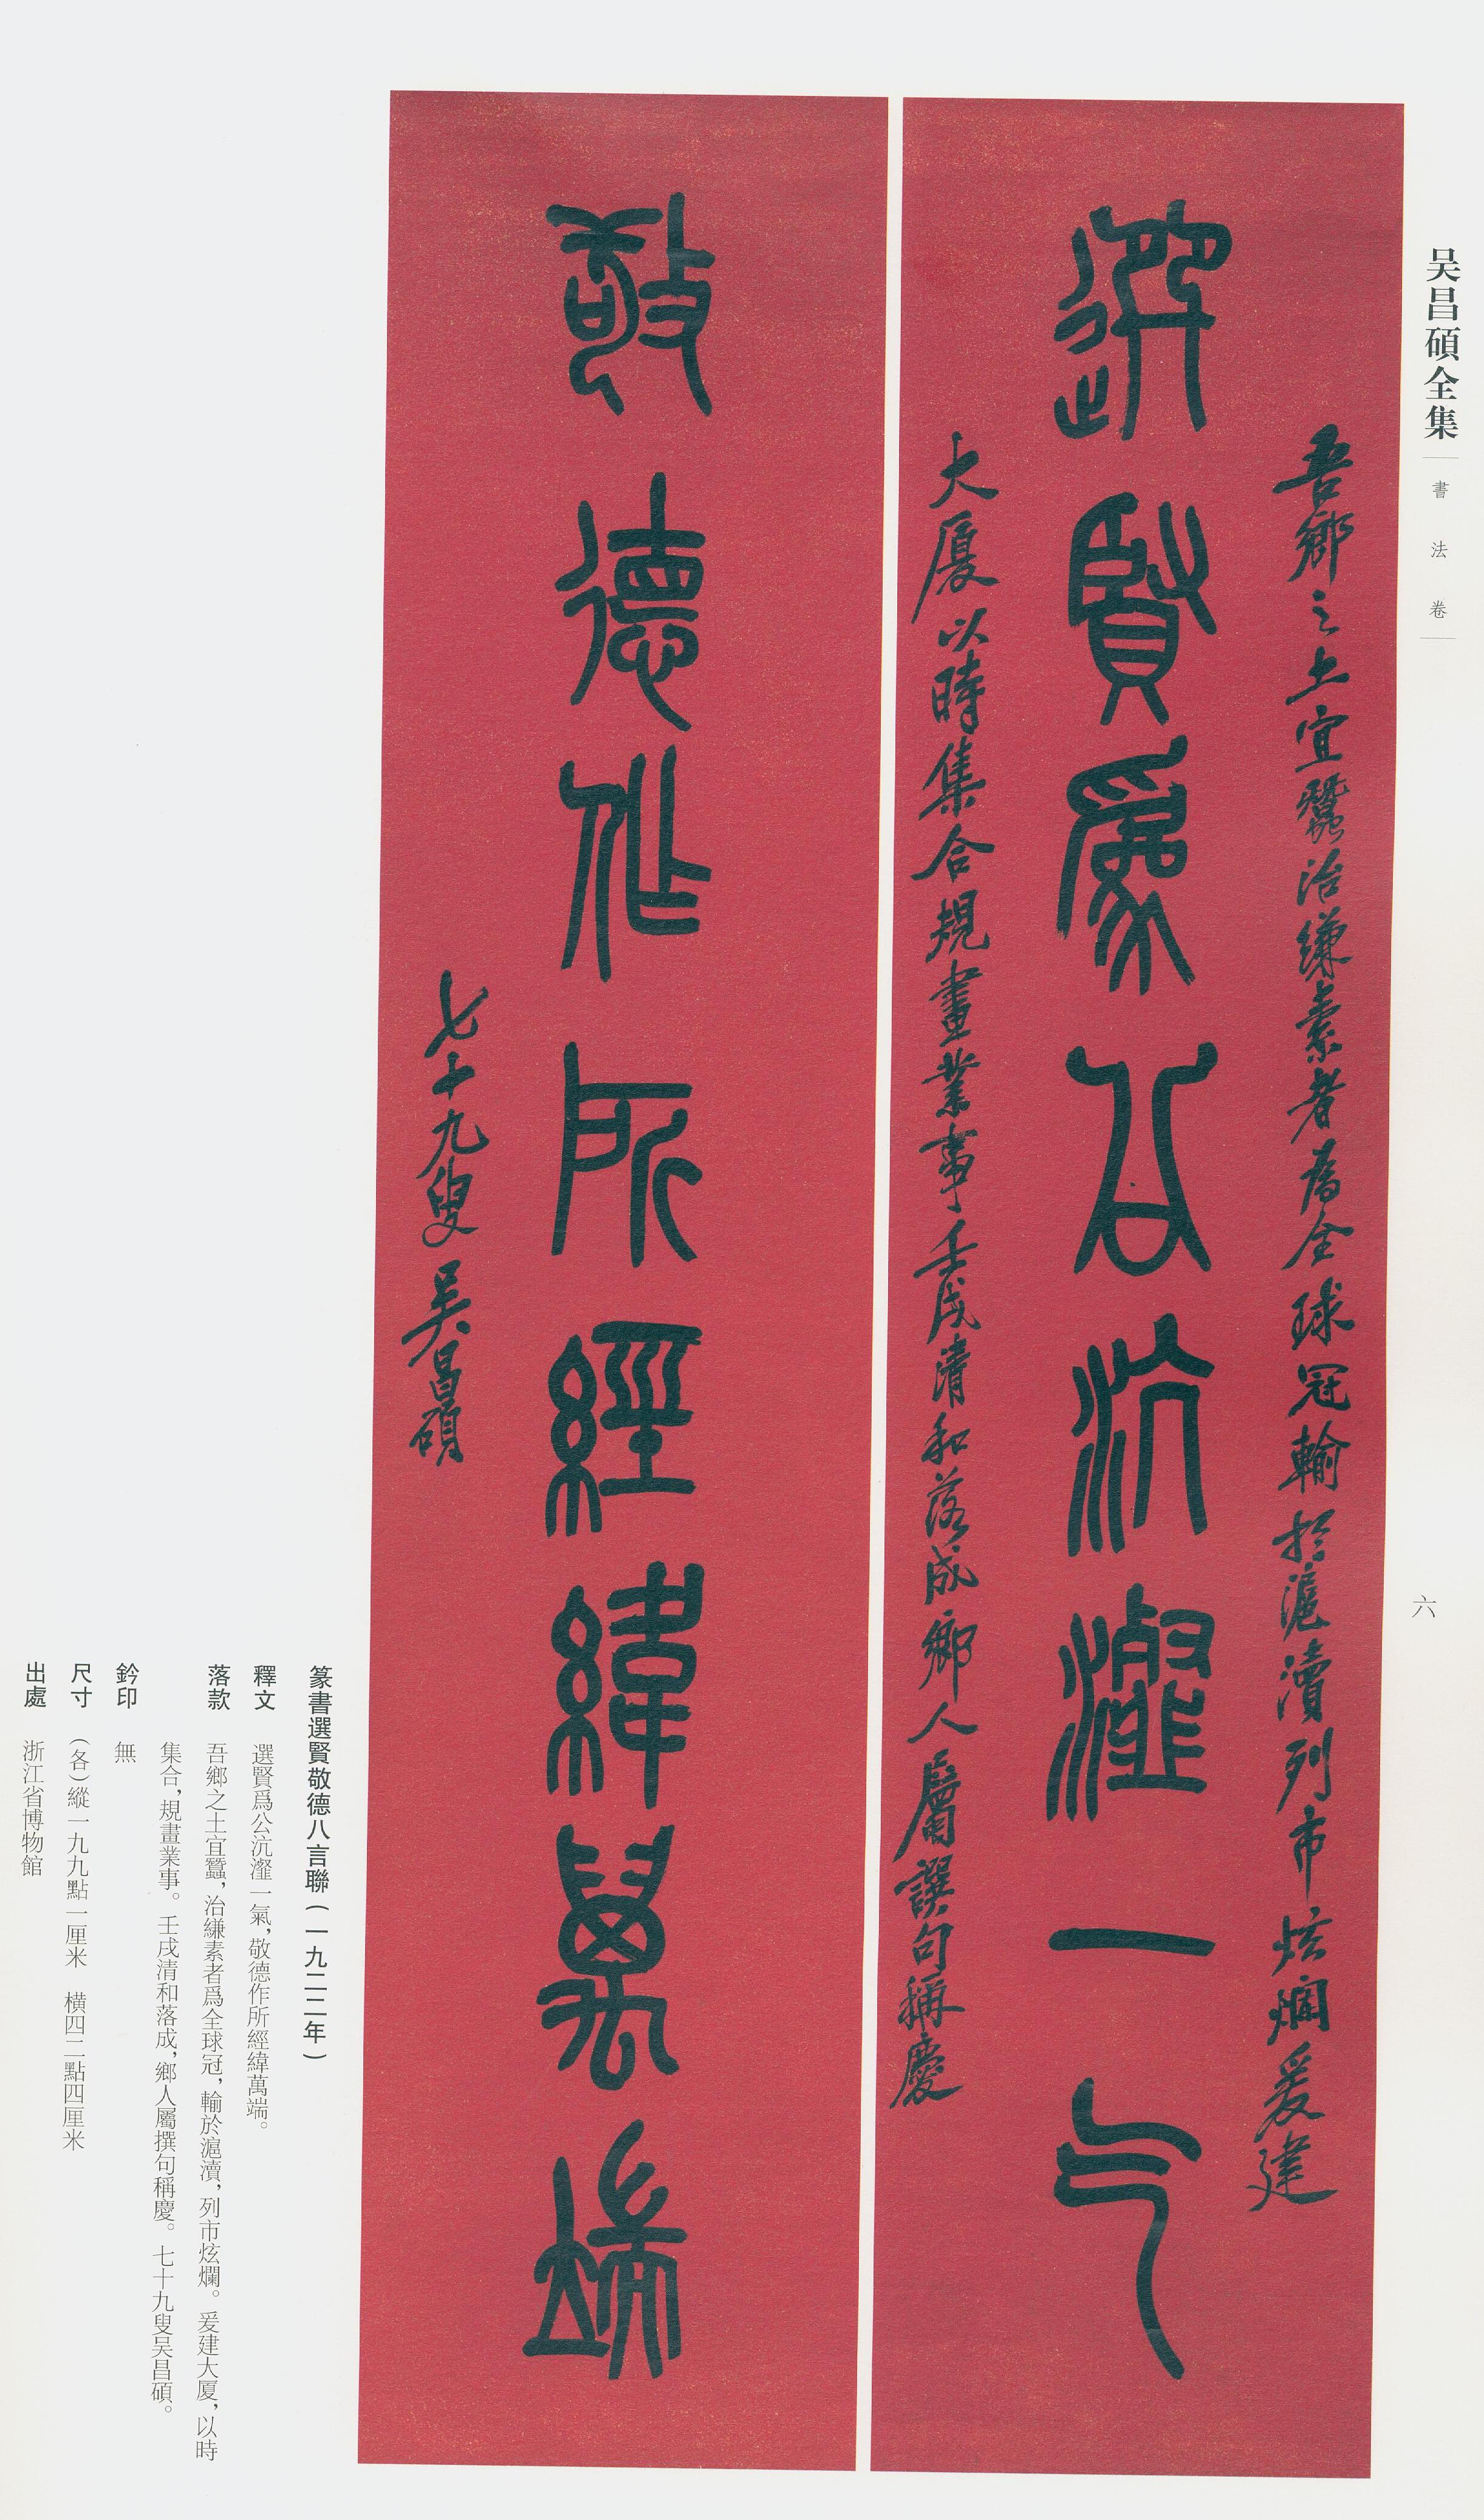 吴昌碩全集
書法卷
六
選賢爲公沆瀣一气
吾鄉之土宜蠶治縑素者為全球冠輸於滬瀆列市炫爛爰建
大厦以時集合規畫業事壬戌清和落成鄉人屬譔句稱慶
敬德作所經緯萬端
七十九叟吴昌碩
篆書選賢敬德八言聯（一九二二年）
釋文　選賢爲公沆瀣一氣，敬德作所經緯萬端。
落款　吾鄉之土宜蠶，治縑素者爲全球冠，輸於滬瀆，列市炫爛。爰建大厦，以時
集合，規畫業事。壬戌清和落成，鄉人屬撰句稱慶。七十九叟吴昌碩。
鈐印　無
尺寸　（各）縱一九九點一厘米　橫四二點四厘米
出處　浙江省博物館